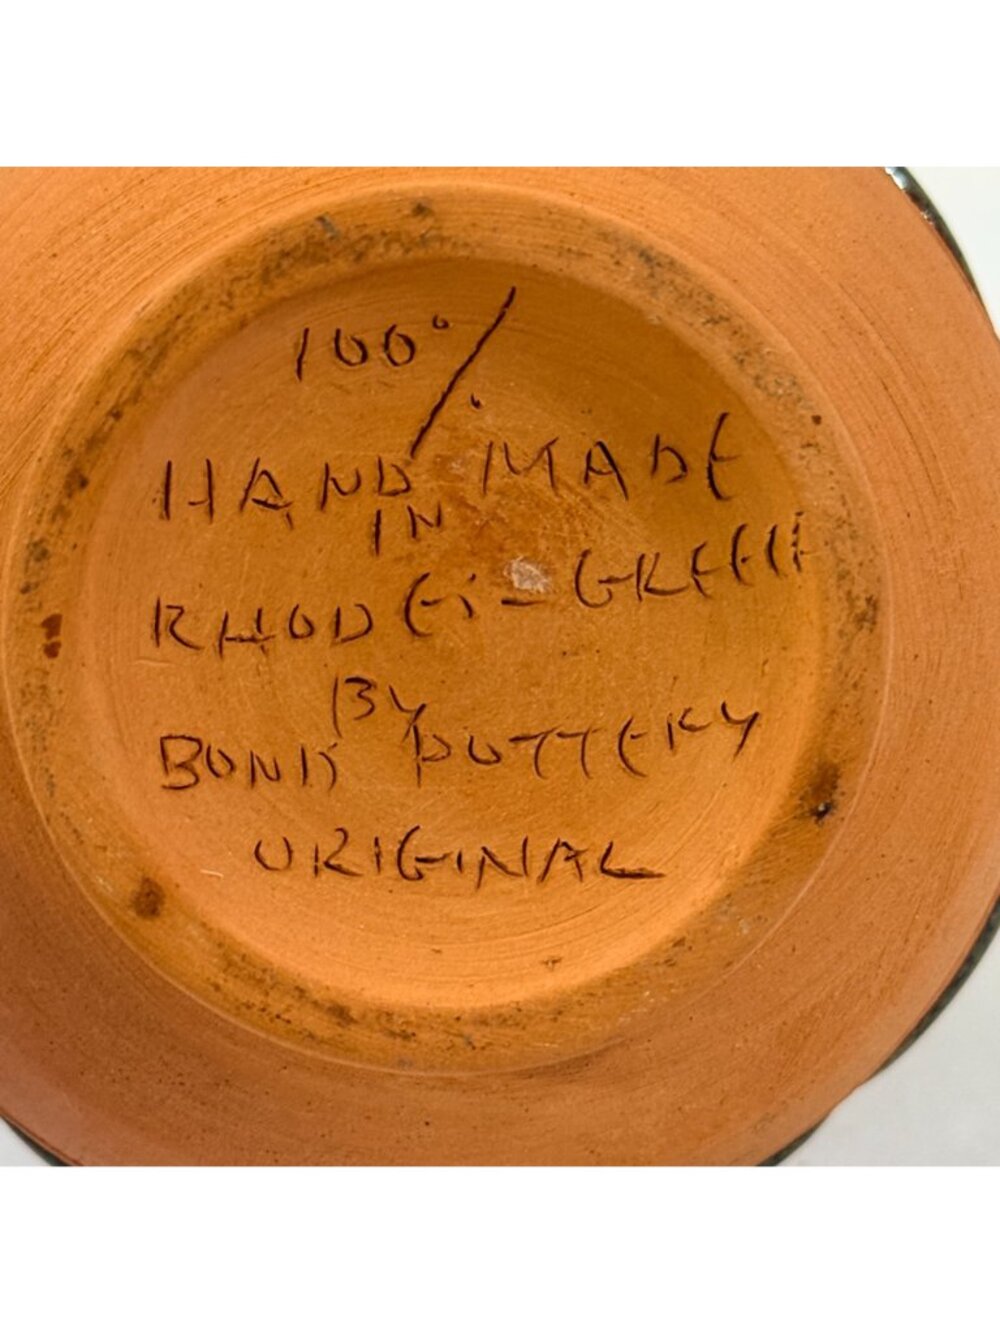 100%
HAND MADE
IN
RHODES - GREECE
BY
BONIS POTTERY
ORIGINAL